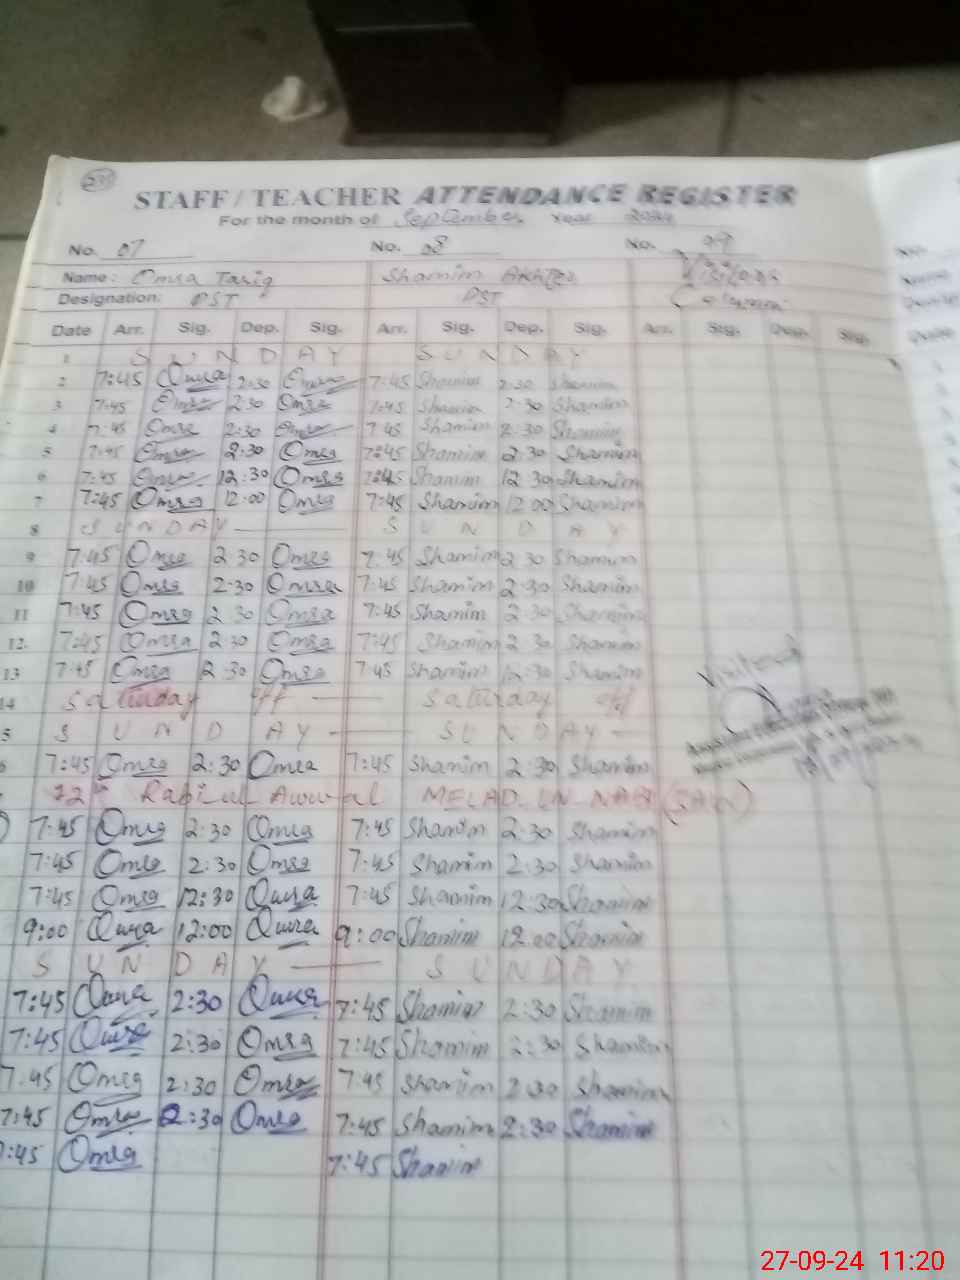 STAFF / TEACHER ATTENDANCE REGISTER
For the month of September Year 2024
No. 07 No. 08 No. 99
Name: Omra Tariq Shamim Akhter Visitors
Designation: PST PST Column
Date Arr. Sig. Dep. Sig. Arr. Sig. Dep. Sig. Arr. Sig. Dep. Sig.
1 SUNDAY SUNDAY
2 7:45 Omra 2:30 Omra 7:45 Shamim 2:30 Shamim
3 7:45 Omra 2:30 Omra 7:45 Shamim 2:30 Shamim
4 7:45 Omra 2:30 Omra 7:45 Shamim 2:30 Shamim
5 7:45 Omra 2:30 Omra 7:45 Shamim 2:30 Shamim
6 7:45 Omra 12:30 Omra 7:45 Shamim 12:30 Shamim
7 7:45 Omra 12:00 Omra 7:45 Shamim 12:00 Shamim
8 SUNDAY SUNDAY
9 7:45 Omra 2:30 Omra 7:45 Shamim 2:30 Shamim
10 7:45 Omra 2:30 Omra 7:45 Shamim 2:30 Shamim
11 7:45 Omra 2:30 Omra 7:45 Shamim 2:30 Shamim
12 7:45 Omra 2:30 Omra 7:45 Shamim 2:30 Shamim
13 7:45 Omra 12:30 Omra 7:45 Shamim 12:30 Shamim
14 Saturday off Saturday off
5 SUNDAY SUNDAY
7:45 Omra 2:30 Omra 7:45 Shamim 2:30 Shamim
12th Rabi ul Awwal MELAD UN NABI (SAW)
7:45 Omra 2:30 Omra 7:45 Shamim 2:30 Shamim
7:45 Omra 2:30 Omra 7:45 Shamim 2:30 Shamim
7:45 Omra 12:30 Omra 7:45 Shamim 12:30 Shamim
9:00 Omra 12:00 Omra 9:00 Shamim 12:00 Shamim
SUNDAY SUNDAY
7:45 Omra 2:30 Omra 7:45 Shamim 2:30 Shamim
7:45 Omra 2:30 Omra 7:45 Shamim 2:30 Shamim
7:45 Omra 2:30 Omra 7:45 Shamim 2:30 Shamim
7:45 Omra 2:30 Omra 7:45 Shamim 2:30 Shamim
7:45 Omra 7:45 Shamim
Visited
27-09-24 11:20